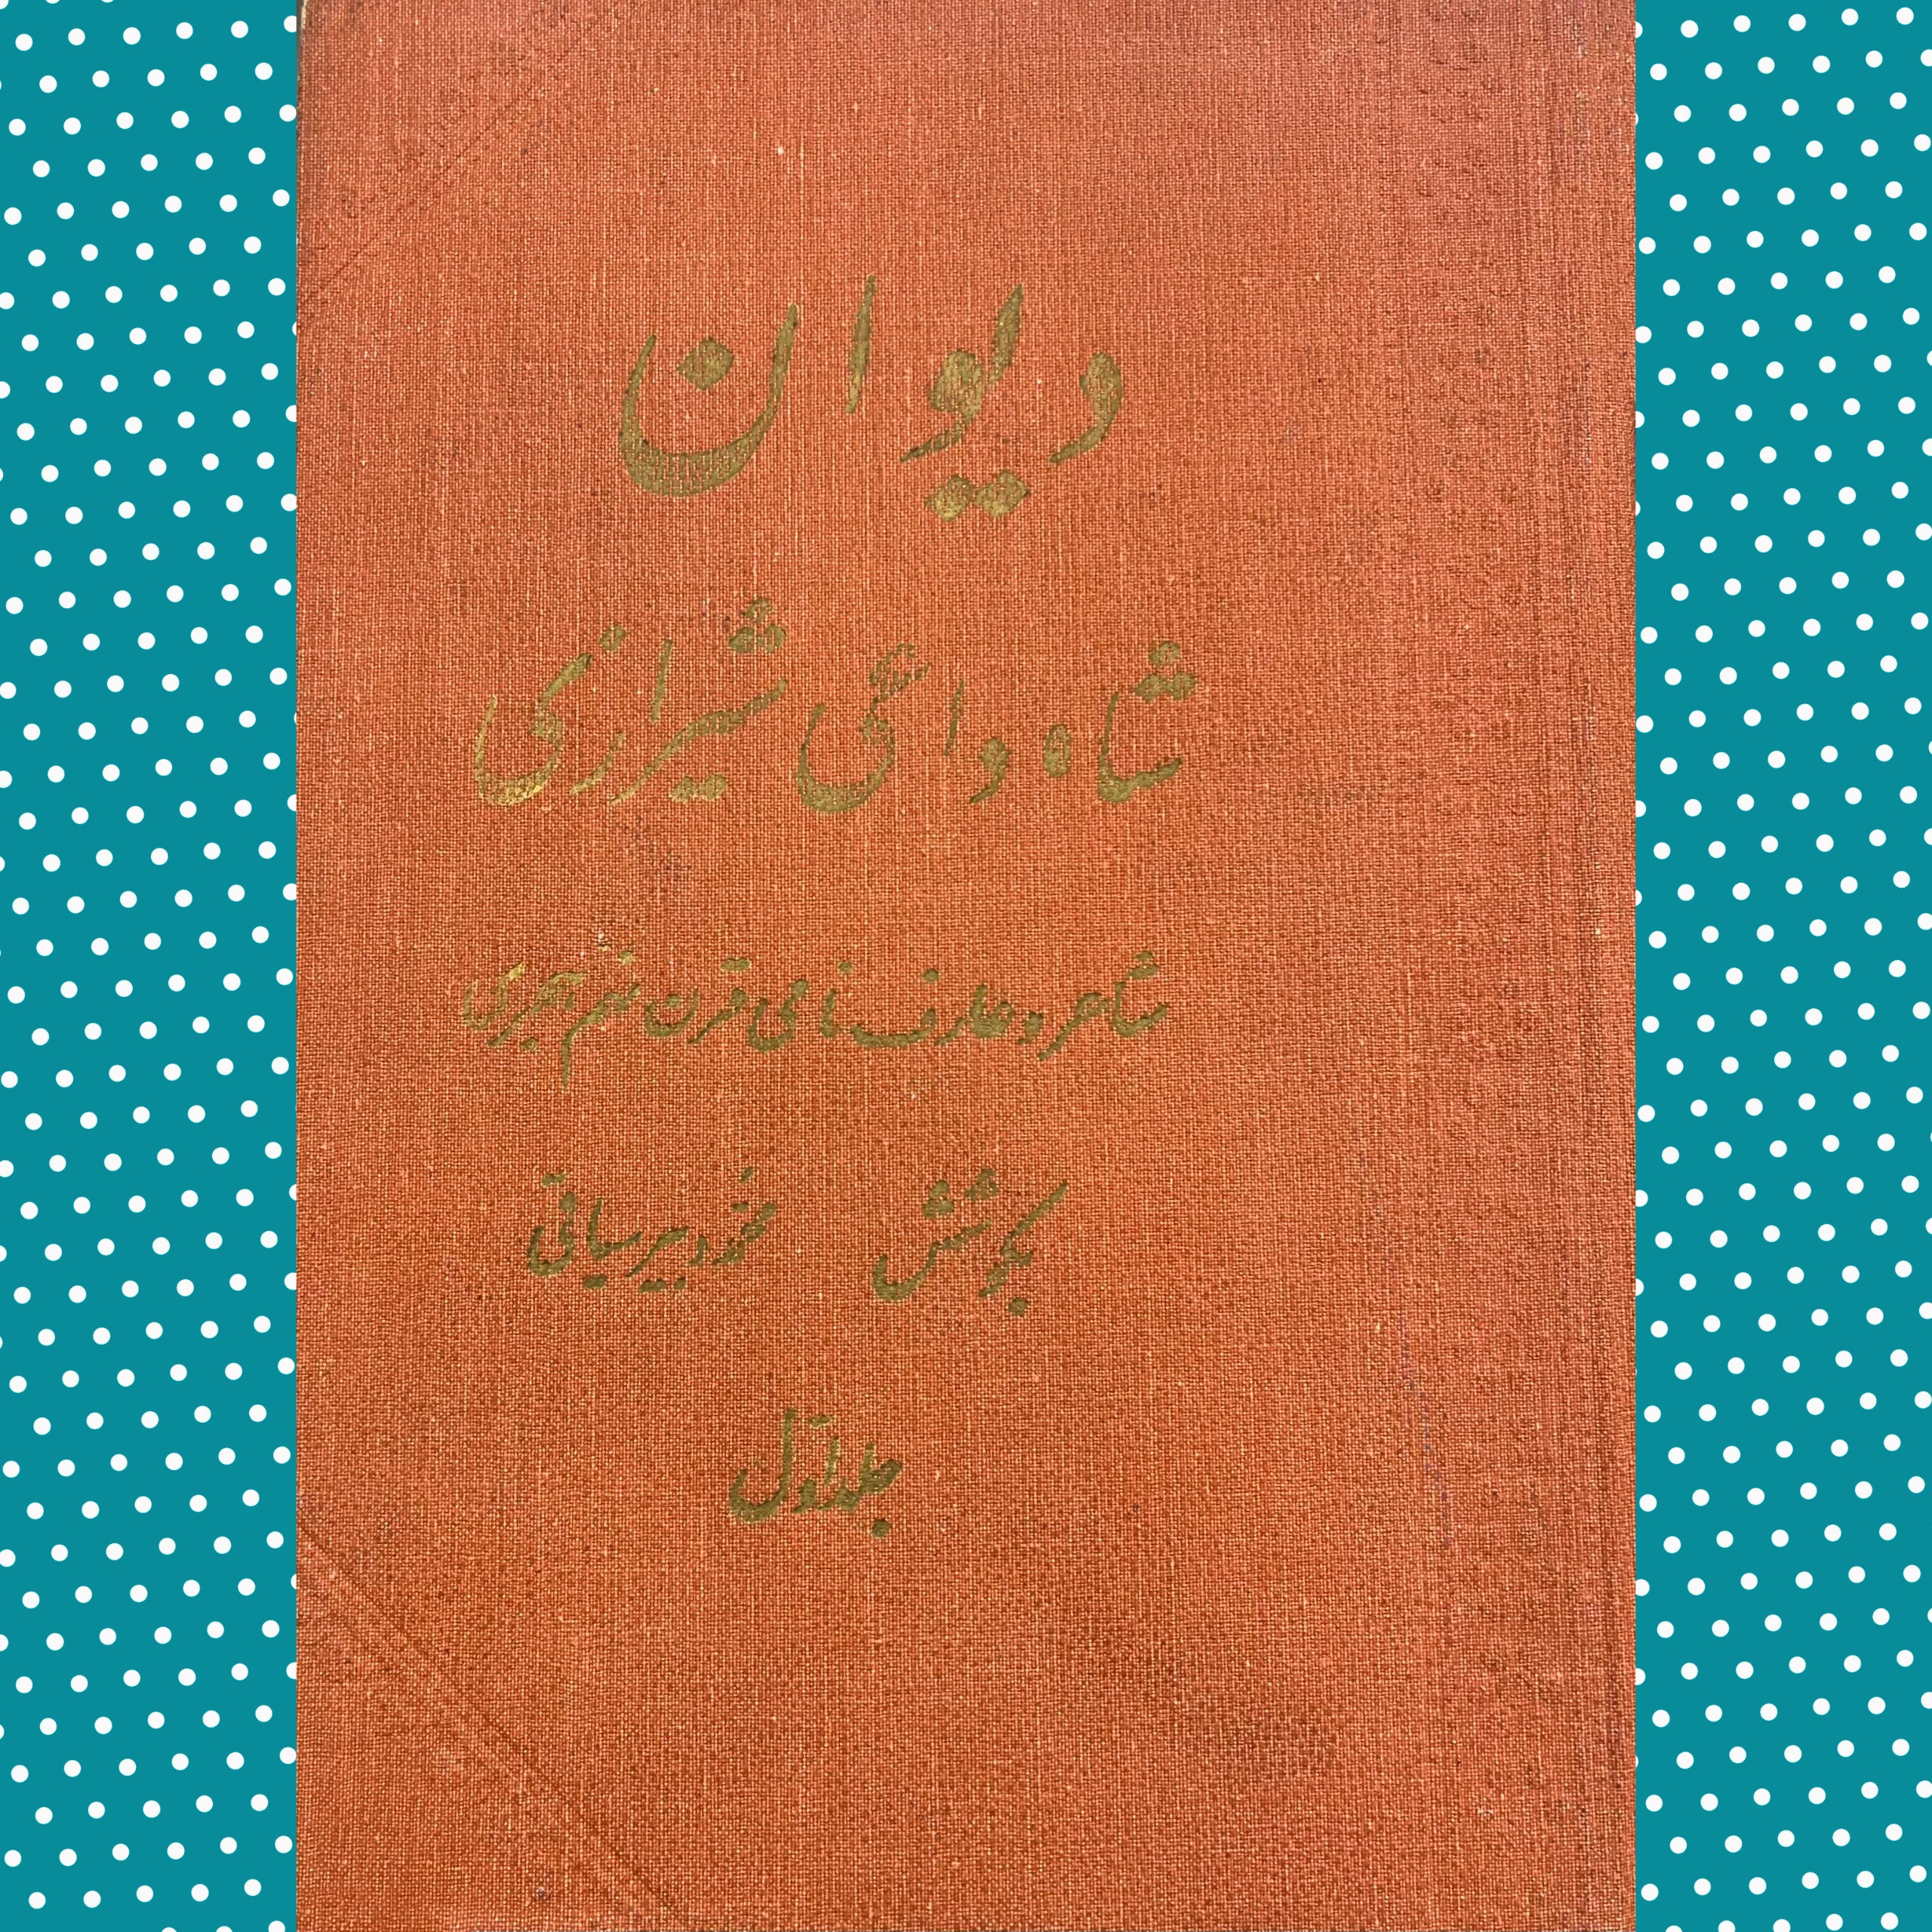 دیوان
شاه داعی شیرازی
شاعر و عارف نامی قرن نهم هجری
بکوشش محمد دبیرسیاقی
جلد اول